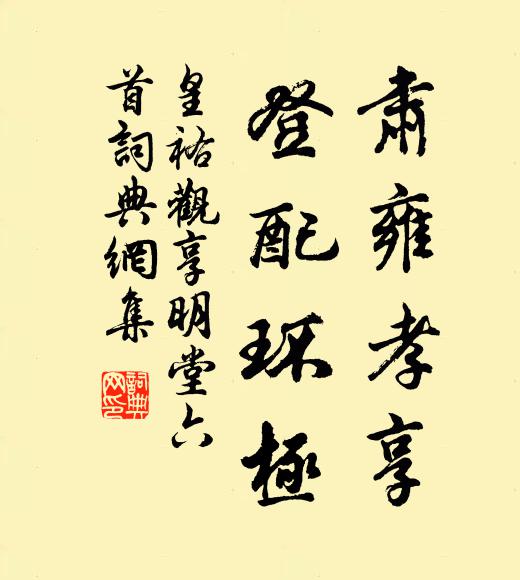 肅雍孝享
登配环極
皇祐觀享明堂六
首詞典網集
詞典
网印